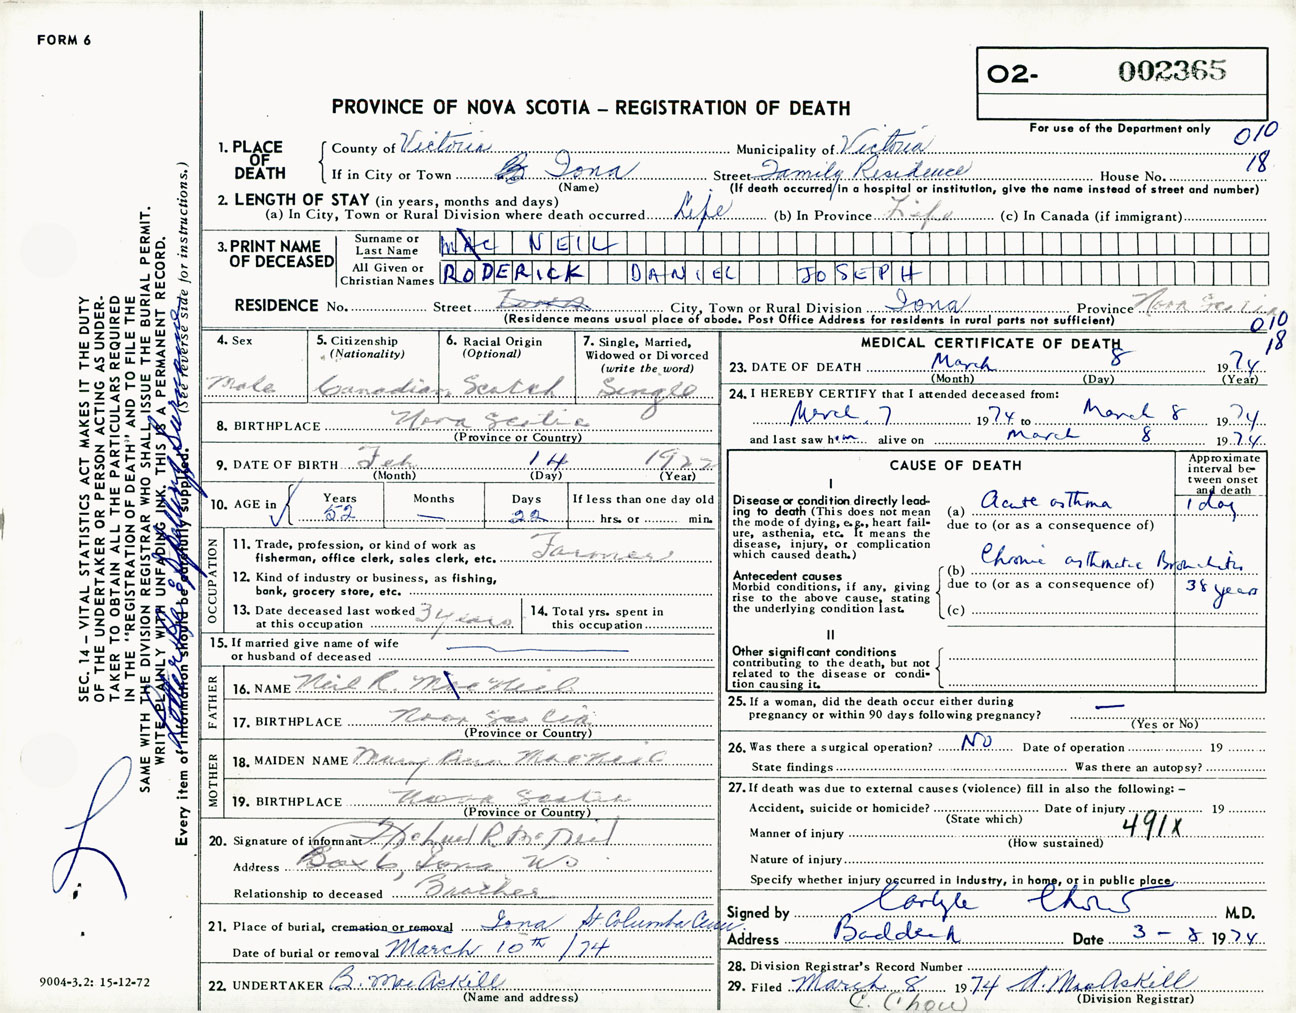 FORM 6
O2- 002365
PROVINCE OF NOVA SCOTIA – REGISTRATION OF DEATH
For use of the Department only
010
18
1. PLACE OF DEATH
County of Victoria Municipality of Victoria
If in City or Town Iona Street Family Residence House No.
(Name) (If death occurred in a hospital or institution, give the name instead of street and number)
2. LENGTH OF STAY (in years, months and days)
(a) In City, Town or Rural Division where death occurred Life (b) In Province Life (c) In Canada (if immigrant)
3. PRINT NAME OF DECEASED
Surname or Last Name MAC NEIL
All Given or Christian Names RODERICK DANIEL JOSEPH
RESIDENCE No. Street Iona City, Town or Rural Division Iona Province Nova Scotia
(Residence means usual place of abode. Post Office Address for residents in rural parts not sufficient)
010
18
4. Sex Male
5. Citizenship (Nationality) Canadian
6. Racial Origin (Optional) Scotch
7. Single, Married, Widowed or Divorced (write the word) Single
8. BIRTHPLACE Nova Scotia
(Province or Country)
9. DATE OF BIRTH Feb 14 1922
(Month) (Day) (Year)
10. AGE in Years 52 Months — Days 22 If less than one day old hrs. or min.
OCCUPATION
11. Trade, profession, or kind of work as fisherman, office clerk, sales clerk, etc. Farmer
12. Kind of industry or business, as fishing, bank, grocery store, etc.
13. Date deceased last worked at this occupation 3 years
14. Total yrs. spent in this occupation
15. If married give name of wife or husband of deceased
FATHER
16. NAME Neil R. MacNeil
17. BIRTHPLACE Nova Scotia
(Province or Country)
MOTHER
18. MAIDEN NAME Mary Ann MacNeil
19. BIRTHPLACE Nova Scotia
(Province or Country)
20. Signature of informant Michael R. McNeil
Address Box 6, Iona NS
Relationship to deceased Brother
21. Place of burial, cremation or removal Iona St Columba Cem.
Date of burial or removal March 10th /74
22. UNDERTAKER B. MacAskill
(Name and address)
MEDICAL CERTIFICATE OF DEATH
23. DATE OF DEATH March 8 1974
(Month) (Day) (Year)
24. I HEREBY CERTIFY that I attended deceased from:
March 7 1974 to March 8 1974
and last saw him alive on March 8 1974
CAUSE OF DEATH
Approximate interval between onset and death
I
Disease or condition directly leading to death (This does not mean the mode of dying, e.g., heart failure, asthenia, etc. It means the disease, injury, or complication which caused death.)
(a) Acute asthma 1 day
due to (or as a consequence of)
Antecedent causes
Morbid conditions, if any, giving rise to the above cause, stating the underlying condition last.
(b) Chronic asthmatic Bronchitis 38 years
due to (or as a consequence of)
(c)
II
Other significant conditions contributing to the death, but not related to the disease or condition causing it.
25. If a woman, did the death occur either during pregnancy or within 90 days following pregnancy? —
(Yes or No)
26. Was there a surgical operation? NO Date of operation 19
State findings Was there an autopsy?
27. If death was due to external causes (violence) fill in also the following: –
Accident, suicide or homicide? Date of injury 19
(State which)
Manner of injury 491X
(How sustained)
Nature of injury
Specify whether injury occurred in Industry, in home, or in public place.
Signed by Carlyle Chow M.D.
Address Baddeck Date 3 - 8 1974
28. Division Registrar's Record Number
29. Filed March 8 1974 MacAskill
(Division Registrar)
C. Chow
SEC. 14 – VITAL STATISTICS ACT MAKES IT THE DUTY
OF THE UNDERTAKER OR PERSON ACTING AS UNDER-
TAKER TO OBTAIN ALL THE PARTICULARS REQUIRED
IN THE "REGISTRATION OF DEATH" AND TO FILE THE
SAME WITH THE DIVISION REGISTRAR WHO SHALL ISSUE THE BURIAL PERMIT.
WRITE PLAINLY WITH UNFADING INK. THIS IS A PERMANENT RECORD.
Every item of information should be carefully supplied. (See reverse side for instructions.)
9004-3.2: 15-12-72